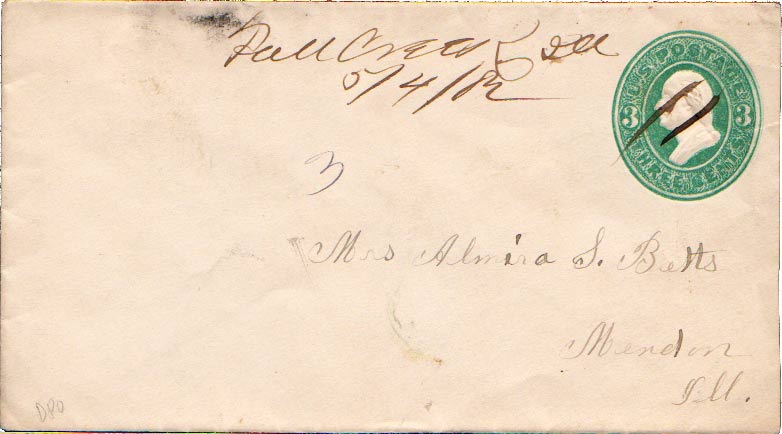 Fall Creek Ill
5/4/82
U.S. POSTAGE
3 3
THREE CENTS
3
Mrs Almira S. Betts
Mendon
Ill.
DPO